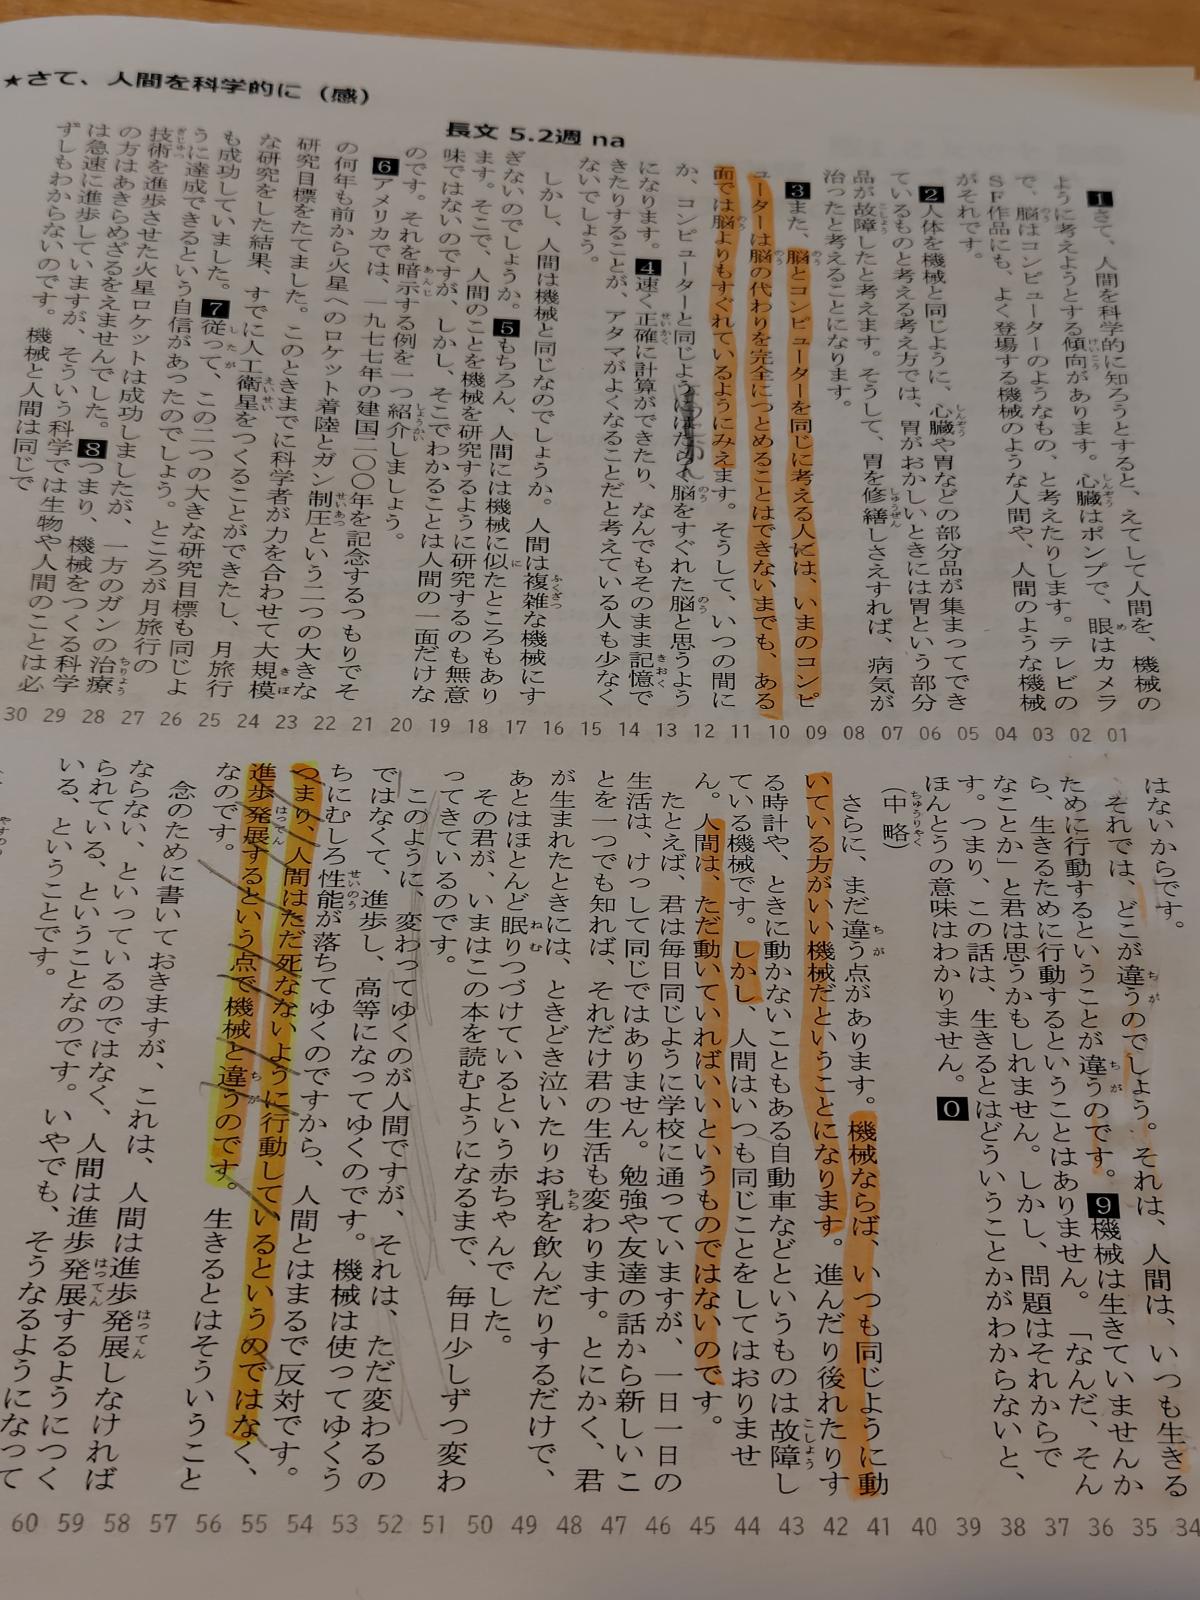 ★さて、人間を科学的に（感）
長文 5.2週 na
1さて、人間を科学的に知ろうとすると、えてして人間を、機械の
ように考えようとする傾向があります。心臓はポンプで、眼はカメラ
で、脳はコンピューターのようなもの、と考えたりします。テレビの
SF作品にも、よく登場する機械のような人間や、人間のような機械
がそれです。
2人体を機械と同じように、心臓や胃などの部分品が集まってでき
ているものと考える考え方では、胃がおかしいときには胃という部分
品が故障したと考えます。そうして、胃を修繕しさえすれば、病気が
治ったと考えることになります。
3また、脳とコンピューターを同じに考える人には、いまのコンピ
ューターは脳の代わりを完全につとめることはできないまでも、ある
面では脳よりもすぐれているようにみえます。そうして、いつの間に
か、コンピューターと同じようにはたらく脳をすぐれた脳と思うよう
になります。4速く正確に計算ができたり、なんでもそのまま記憶で
きたりすることが、アタマがよくなることだと考えている人も少なく
ないでしょう。
しかし、人間は機械と同じなのでしょうか。人間は複雑な機械にす
ぎないのでしょうか。5もちろん、人間には機械に似たところもあり
ます。そこで、人間のことを機械を研究するように研究するのも無意
味ではないのですが、しかし、そこでわかることは人間の一面だけな
のです。それを暗示する例を一つ紹介しましょう。
6アメリカでは、一九七七年の建国二〇〇年を記念するつもりでそ
の何年も前から火星へのロケット着陸とガン制圧という二つの大きな
研究目標をたてました。このときまでに科学者が力を合わせて大規模
な研究をした結果、すでに人工衛星をつくることができたし、月旅行
も成功していました。7従って、この二つの大きな研究目標も同じよ
うに達成できるという自信があったのでしょう。ところが月旅行の
技術を進歩させた火星ロケットは成功しましたが、一方のガンの治療
の方はあきらめざるをえませんでした。8つまり、機械をつくる科学
は急速に進歩していますが、そういう科学では生物や人間のことは必
ずしもわからないのです。機械と人間は同じで
30 29 28 27 26 25 24 23 22 21 20 19 18 17 16 15 14 13 12 11 10 09 08 07 06 05 04 03 02 01
はないからです。
それでは、どこが違うのでしょう。それは、人間は、いつも生きる
ために行動するということが違うのです。9機械は生きていませんか
ら、生きるために行動するということはありません。「なんだ、そん
なことか」と君は思うかもしれません。しかし、問題はそれからで
す。つまり、この話は、生きるとはどういうことかがわからないと、
ほんとうの意味はわかりません。0
（中略）
さらに、まだ違う点があります。機械ならば、いつも同じように動
いている方がいい機械だということになります。進んだり後れたりす
る時計や、ときに動かないこともある自動車などというものは故障し
ている機械です。しかし、人間はいつも同じことをしてはおりませ
ん。人間は、ただ動いていればいいというものではないのです。
たとえば、君は毎日同じように学校に通っていますが、一日一日の
生活は、けっして同じではありません。勉強や友達の話から新しいこ
とを一つでも知れば、それだけ君の生活も変わります。とにかく、君
が生まれたときには、ときどき泣いたりお乳を飲んだりするだけで、
あとはほとんど眠りつづけているという赤ちゃんでした。
その君が、いまはこの本を読むようになるまで、毎日少しずつ変わ
ってきているのです。
このように、変わってゆくのが人間ですが、それは、ただ変わるの
ではなくて、進歩し、高等になってゆくのです。機械は使ってゆくう
ちにむしろ性能が落ちてゆくのですから、人間とはまるで反対です。
つまり、人間はただ死なないように行動しているというのではなく、
進歩発展するという点で機械と違うのです。生きるとはそういうこと
なのです。
念のために書いておきますが、これは、人間は進歩発展しなければ
ならない、といっているのではなく、人間は進歩発展するようにつく
られている、ということなのです。いやでも、そうなるようになって
いる、ということです。
60 59 58 57 56 55 54 53 52 51 50 49 48 47 46 45 44 43 42 41 40 39 38 37 36 35 34